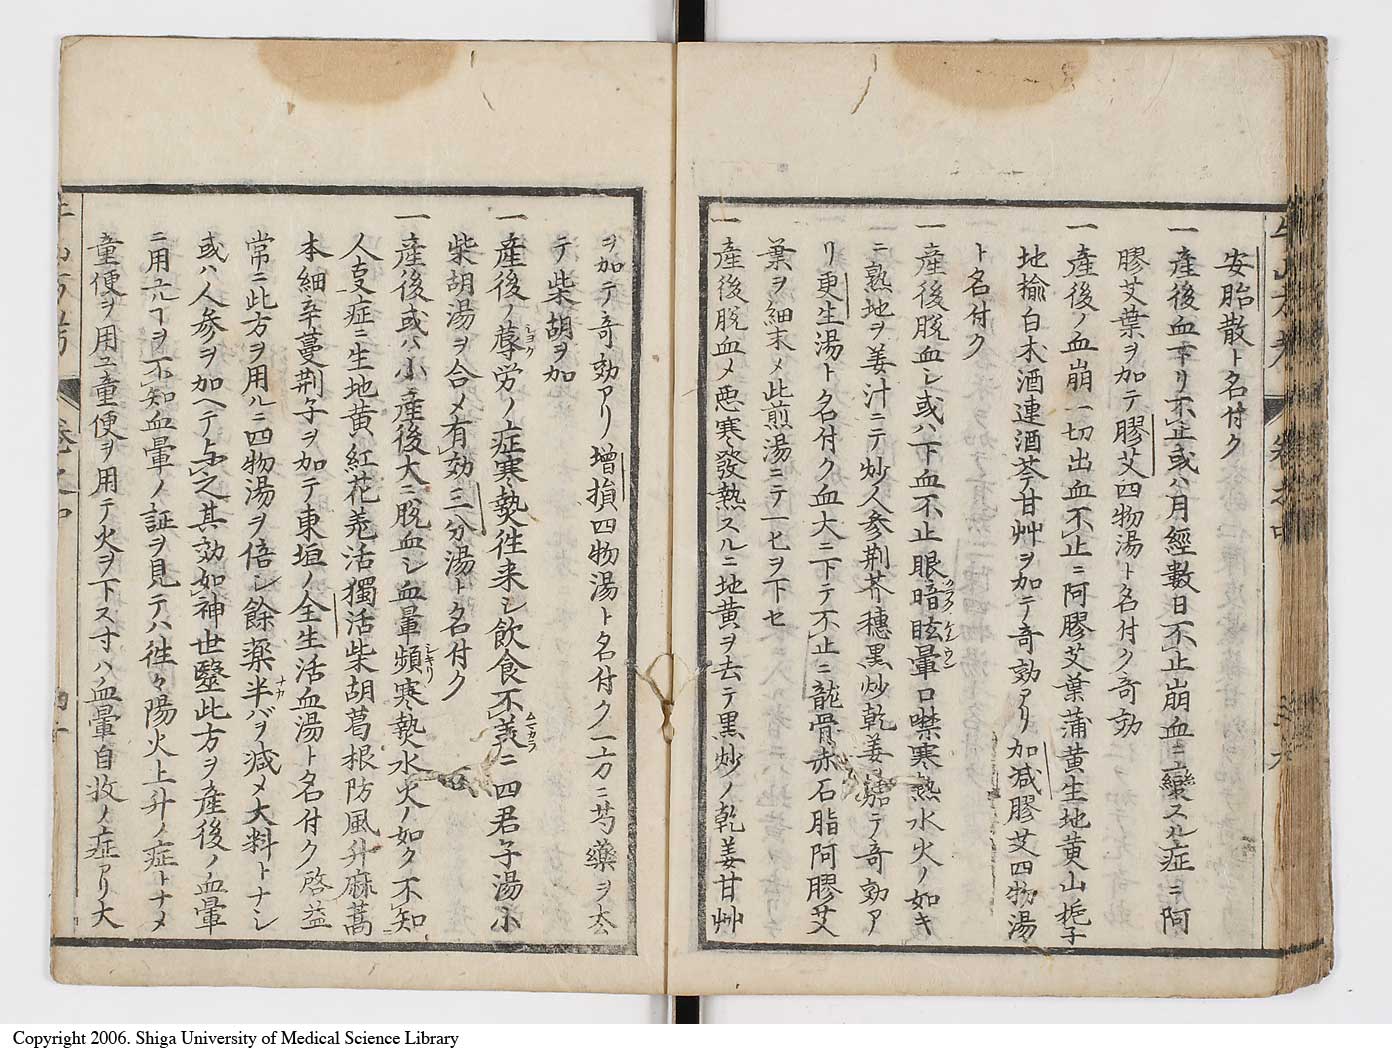 安胎散ト名付ク
一 産後血下リ不止或ハ月經數日不止崩血ニ変スル症ニ阿
膠艾葉ヲ加テ膠艾四物湯ト名付ク奇効
一 産後ノ血崩一切出血不止ニ阿膠艾葉蒲黄生地黄山梔子
地榆白朮酒連酒芩甘艸ヲ加テ奇効アリ加減膠艾四物湯
ト名付ク
一 産後脱血シ或ハ下血不止眼暗眩暈口噤寒熱水火ノ如キ
ニ熟地ヲ姜汁ニテ炒人参荆芥穗黒炒乾姜テ奇効ア
リ更生湯ト名付ク血大ニ下テ不止ニ龍骨赤石脂阿膠艾
葉ヲ細末メ此煎湯ニテ一匕ヲ下セ
一 産後脱血メ悪寒發熱スルニ地黄ヲ去テ黒炒ノ乾姜甘艸
ヲ加テ奇効アリ増損四物湯ト名付ク一方ニ芍藥ヲ去
テ柴胡ヲ加
一 産後ノ蓐労ノ症寒熱往来シ飲食不美ニ四君子湯小
柴胡湯ヲ合メ有効三分湯ト名付ク
一 産後或ハ小産後大ニ脱血シ血暈頻寒熱水火ノ如ク不知
人支症ニ生地黄紅花羗活獨活柴胡葛根防風升麻藁
本細辛蔓荆子ヲ加テ東垣ノ全生活血湯ト名付ク啓益
常ニ此方ヲ用ルニ四物湯ヲ倍シ餘薬半バヲ減メ大料トナシ
或ハ人参ヲ加ヘテ与之其効如神世醫此方ヲ産後ノ血暈
ニ用ルヿヲ不知血暈ノ証ヲ見テハ徃々陽火上升ノ症トナメ
童便ヲ用ユ童便ヲ用テ火ヲ下ス寸ハ血暈自收ノ症アリ大
Copyright 2006. Shiga University of Medical Science Library